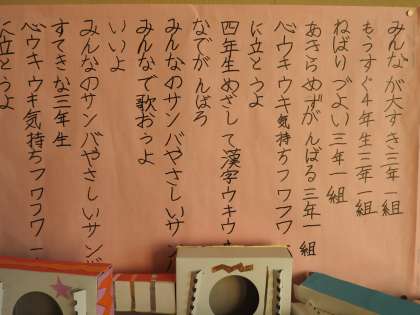 みんなが大すき三年一組
もうすぐ4年生三年一組
ねばりづよい三年一組
あきらめずがんばる三年一組
心ウキウキ気持ちフワフワ一
に立とうよ
四年生めざして漢字ウキウキ
なでがんばろ
みんなのサンバやさしいサン
みんなで歌おうよ
いいよ
みんなのサンバやさしいサンバ
すてきな三年生
心ウキウキ気持ちフワフワ一
に立とうよ